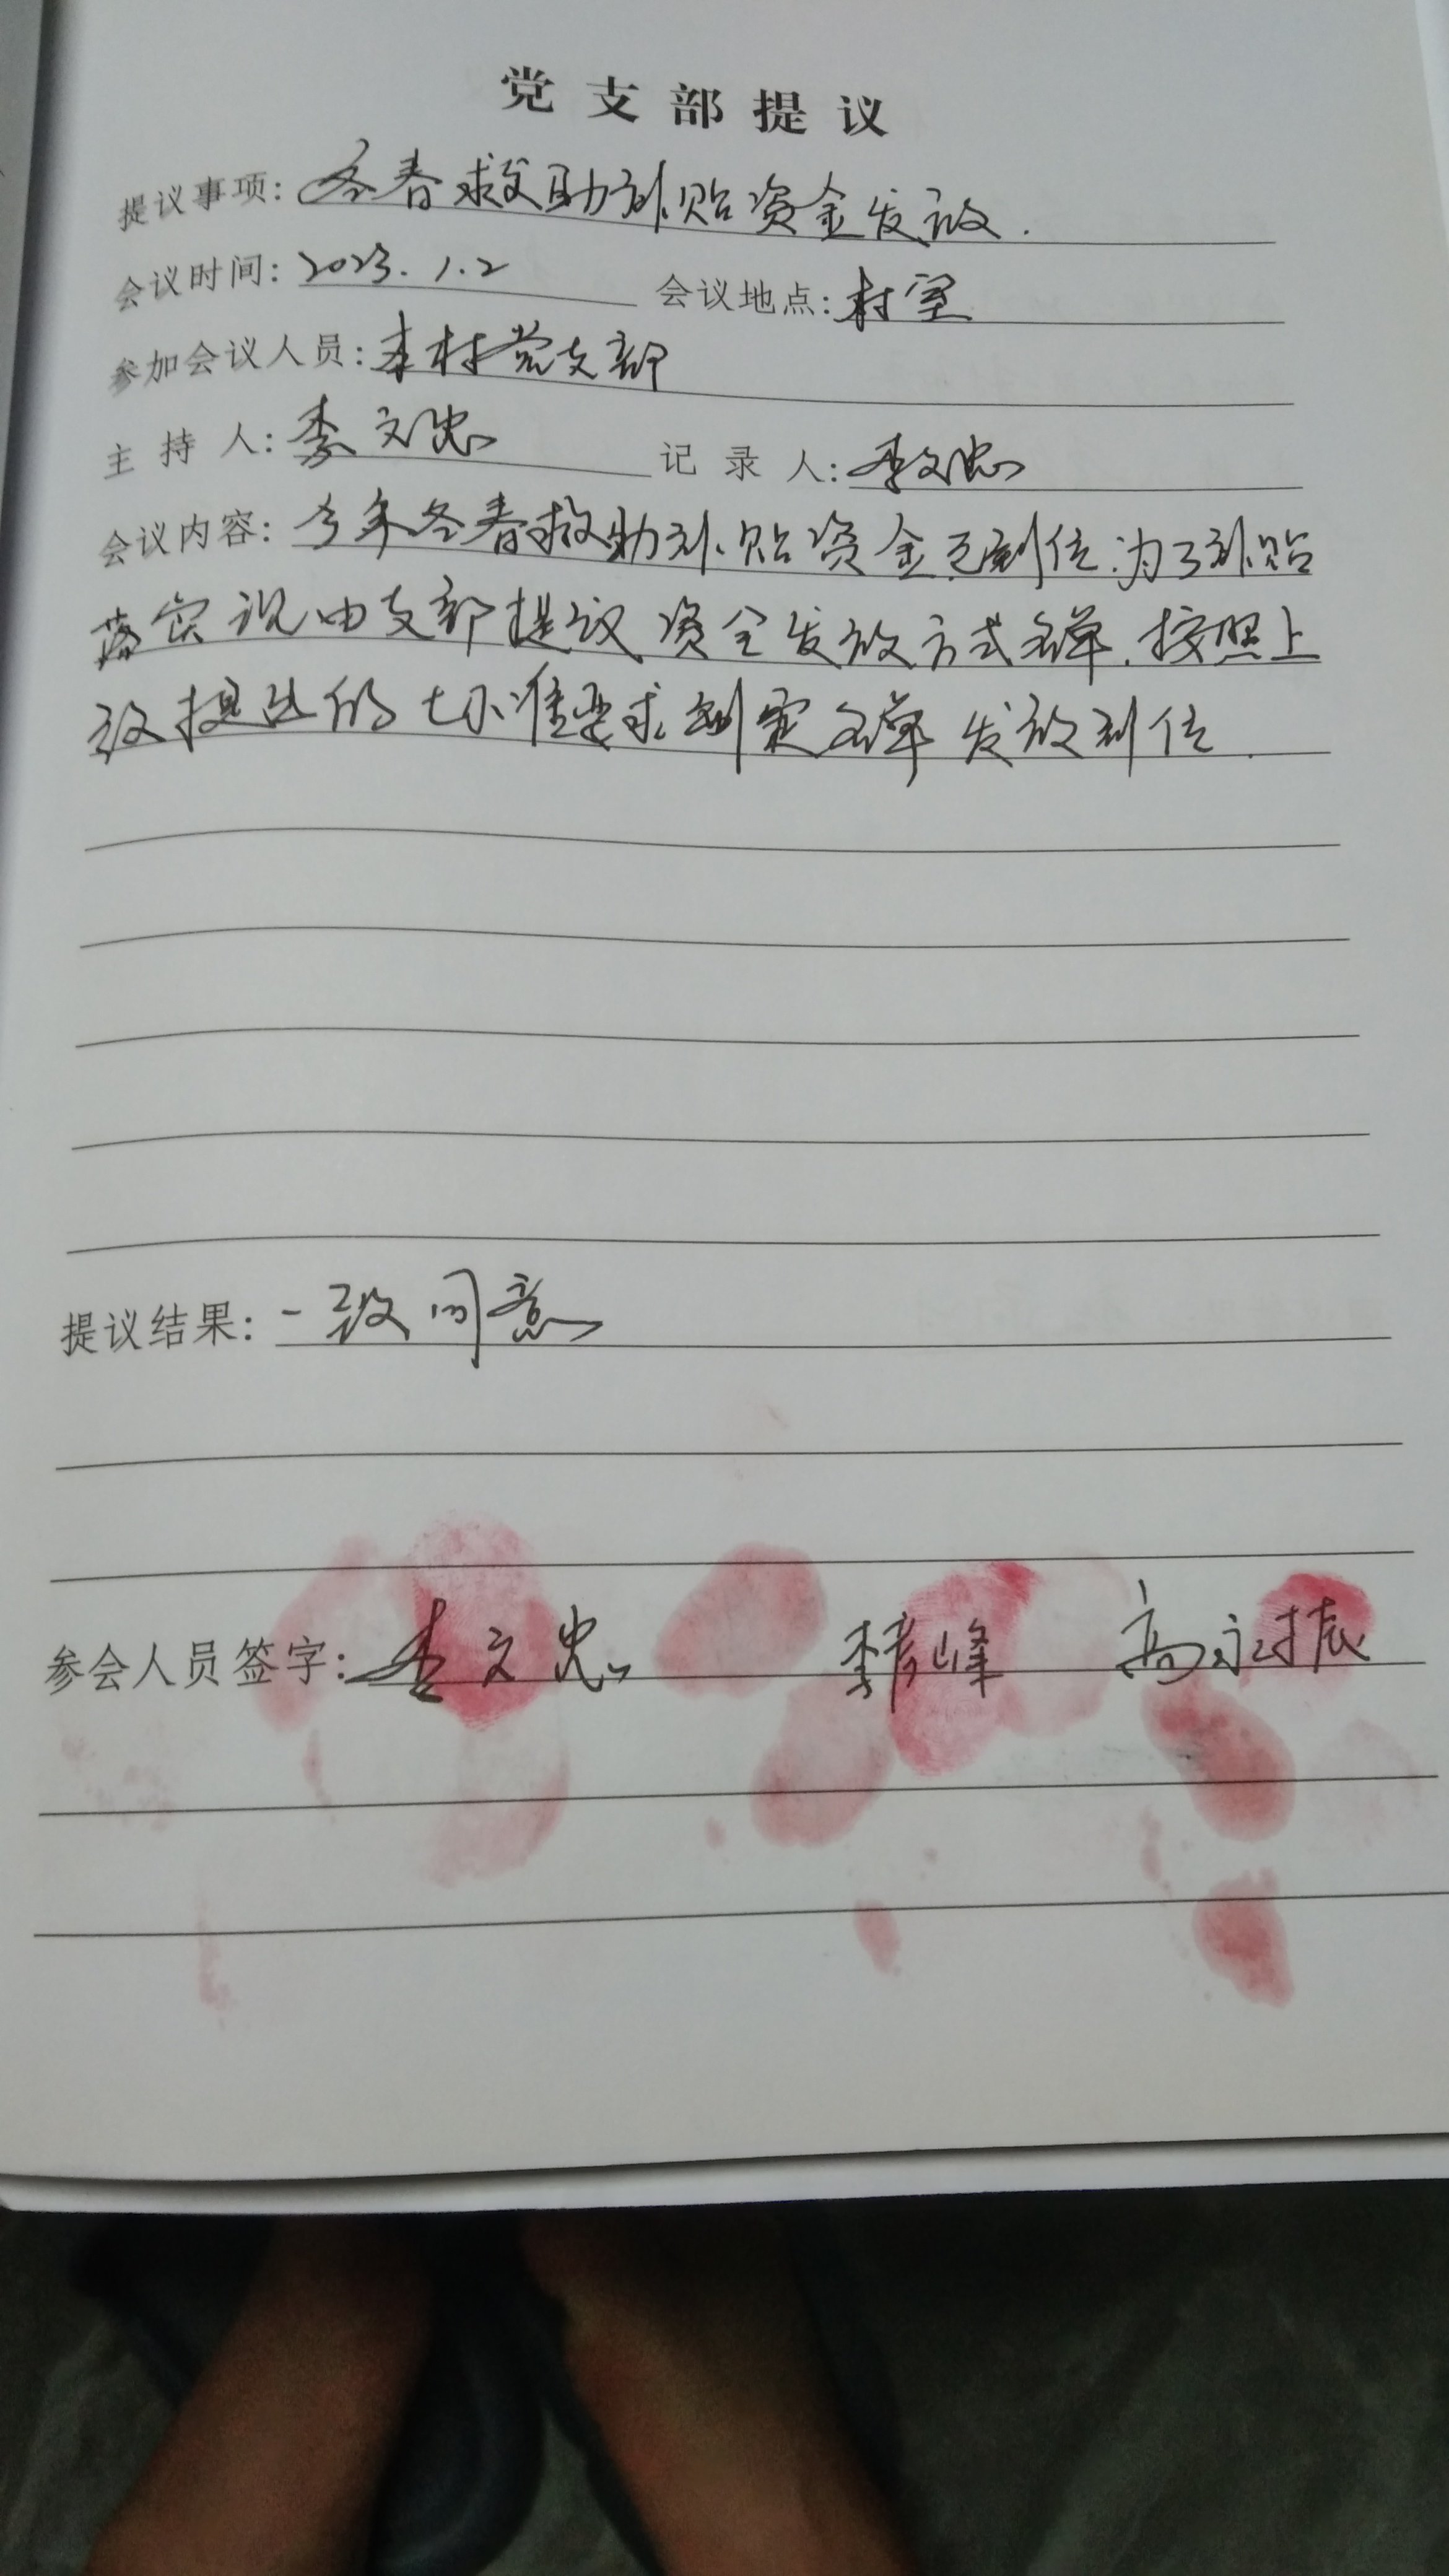 党支部提议
提议事项: 冬春救助补贴资金发放.
会议时间: 2023.1.2 会议地点: 村室
参加会议人员: 本村党支部
主持人: 李文忠 记录人: 李文忠
会议内容: 今年冬春救助补贴资金已到位.为了补贴
落实 现由支部提议资金发放方式名单.按照上
级提出的标准要求制定名单发放到位.
提议结果: 一致同意
参会人员签字: 李文忠 李彦峰 高永振